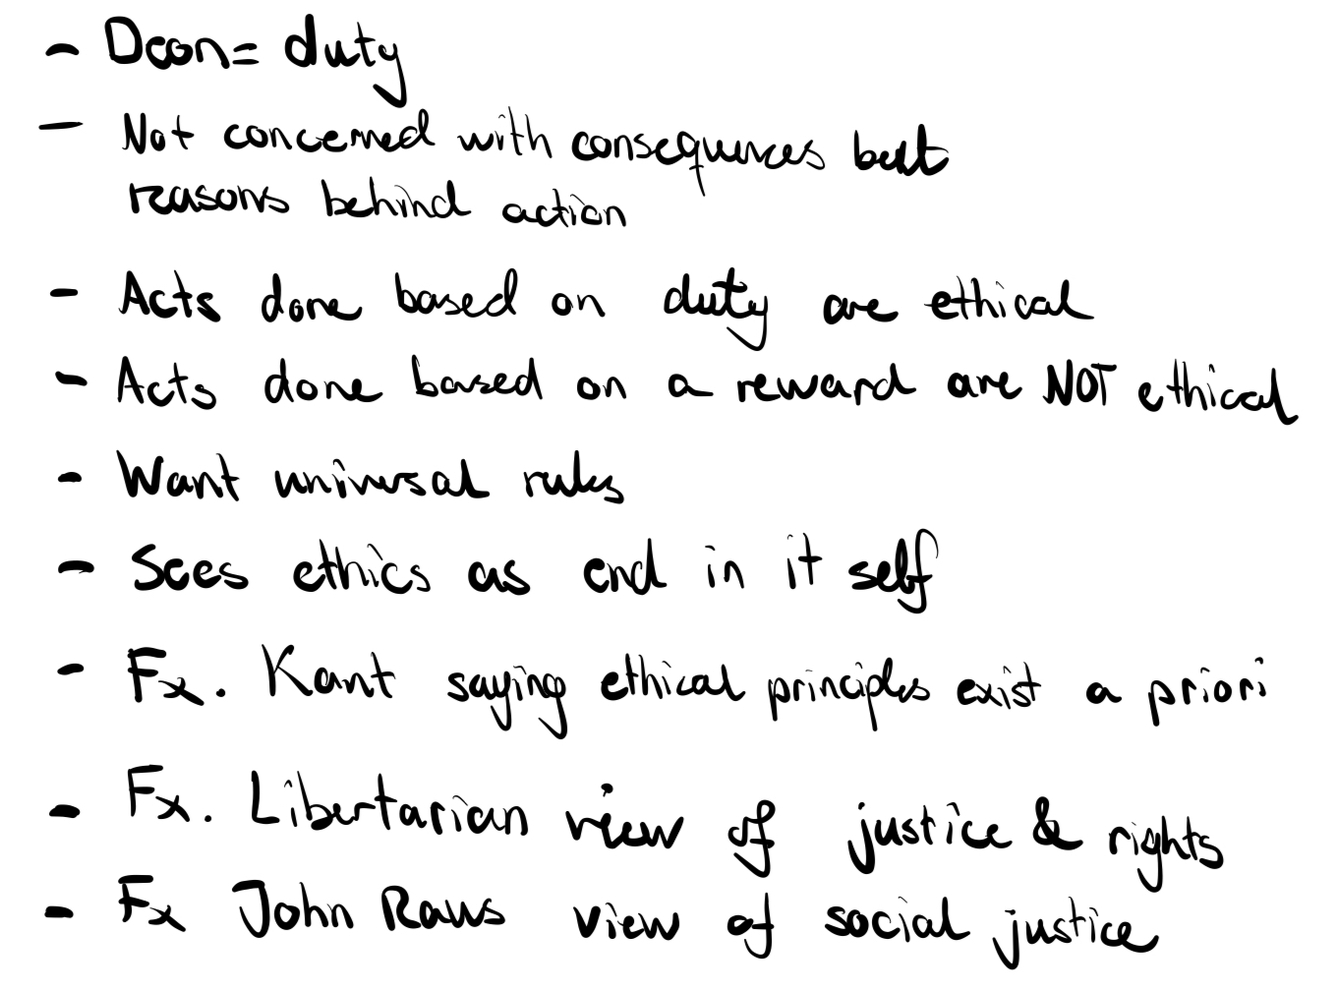 - Deon= duty
- Not concerned with consequences but
reasons behind action
- Acts done based on duty are ethical
- Acts done based on a reward are NOT ethical
- Want universal rules
- Sees ethics as end in it self
- Fx. Kant saying ethical principles exist a priori
- Fx. Libertarian view of justice & rights
- Fx John Raws view of social justice